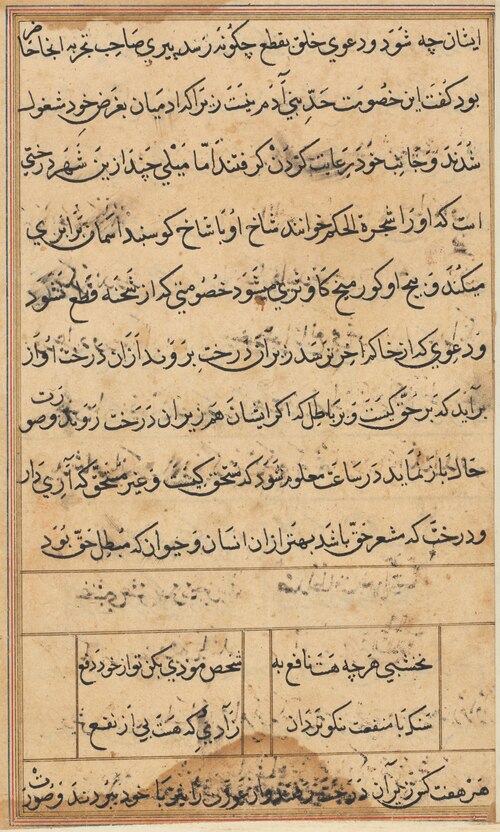 ایشان چه شود و دعوی خلق بقطع چگونه رسد پیری صاحب تجربه انجا حاضر
بود کفت این خصومت حدّ بنی آدم نیست زیرا که ادمیان بغرض خود مشغول
شدند و جانب خود رعایت کردن کرفتند امّا میلی چند ازین شهر درختی
است که اورا شجرة الحکم خوانند شاخ او با شاخ کو سپند اسمان برابری
میکند و بیخ او کور میخ کاو ثری میشود خصومتی که از شحنه قطع نشود
و دعوی که از حاکم اخر نرسد زیر آن درخت بروند از آن درخت اواز
برآید که بر حق کیست و بر باطل که اکر ایشان هم زیر ان درخت روند و صورت
حال باز نماید در ساعت معلوم شود که مستحق کیست و غیر مستحق که آری دار
و درختی که مشعر حق باشد بهتر از ان انسان و حیوان که مبطل حق بود
نخشبی هرچه هست نافع به
شخص موذی بکن تو از خود دفع
سنک با منفعت نکوتر دان
زآدمی که هست بی از نفع
هر هفت کس زیر آن درخت و آن عورت را نیز با خود بردند و صورت